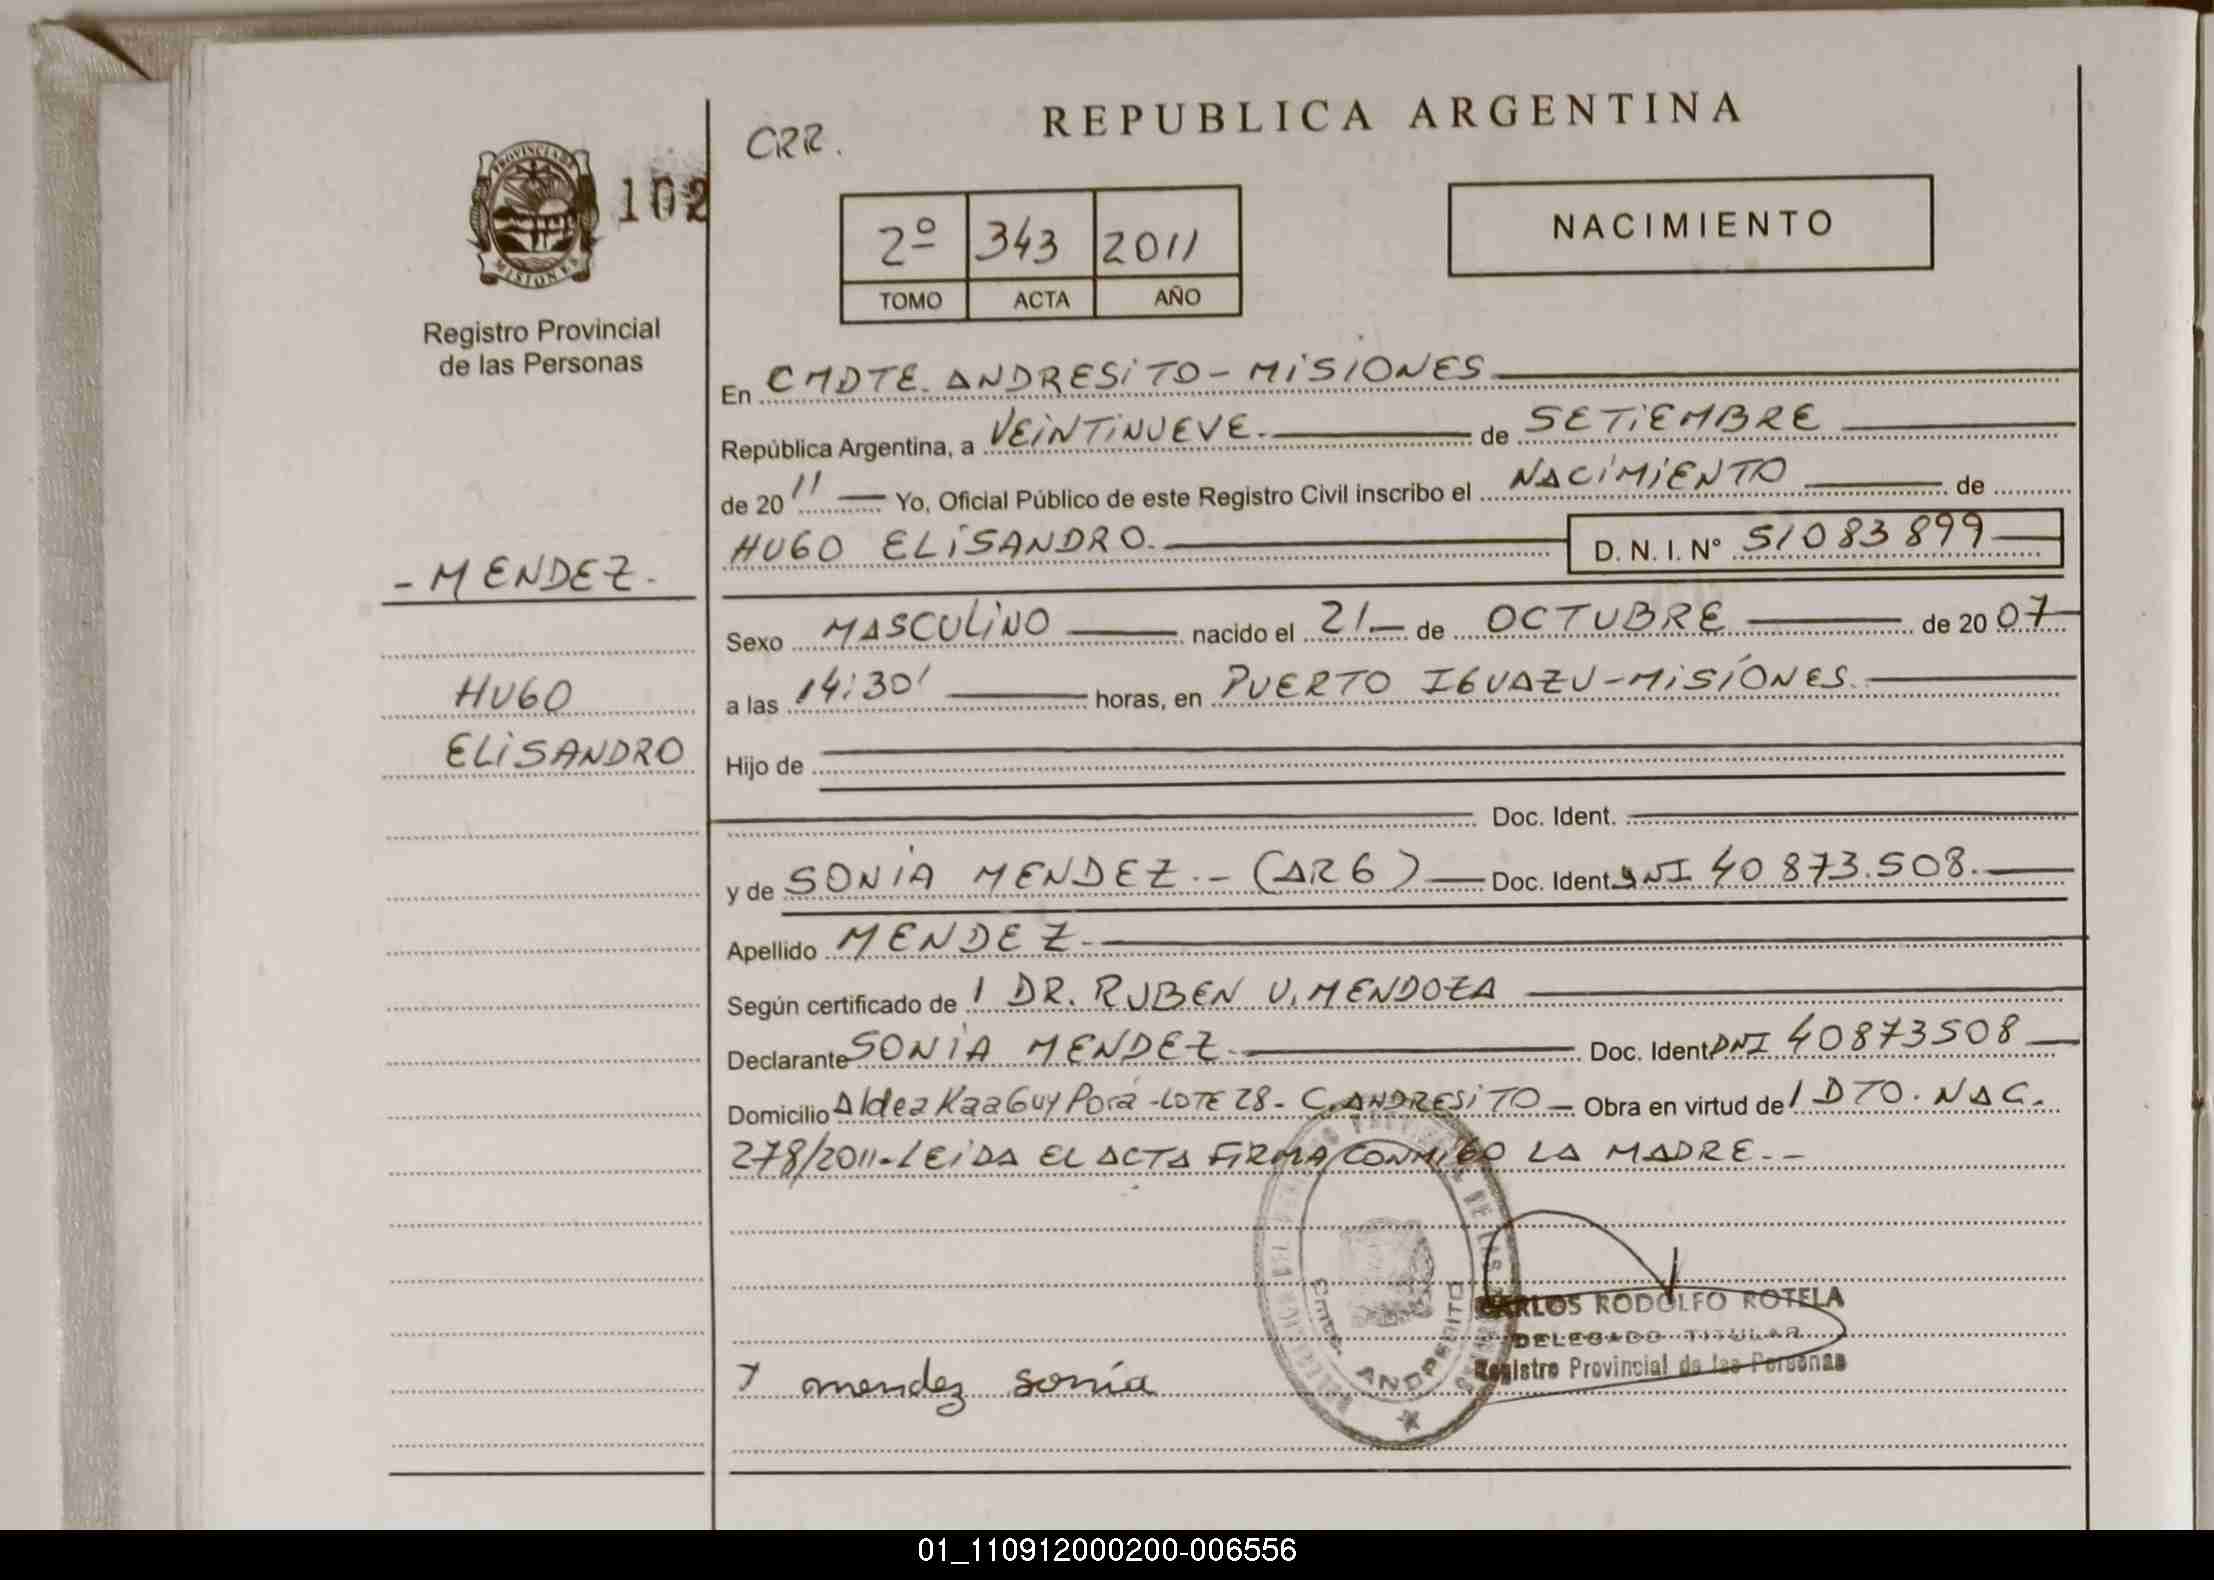 REPUBLICA ARGENTINA
CRR.
PROVINCIA DE
MISIONES
102
2º 343 2011
TOMO ACTA AÑO
NACIMIENTO
Registro Provincial
de las Personas
En CMDTE. ANDRESITO - MISIONES
República Argentina, a VEINTINUEVE. de SETIEMBRE
de 20 11 Yo, Oficial Público de este Registro Civil inscribo el NACIMIENTO de
HUGO ELISANDRO. D. N. I. Nº 51083899
- MENDEZ -
Sexo MASCULINO nacido el 21 de OCTUBRE de 20 07
HUGO
a las 14:30' horas, en PUERTO IGUAZU - MISIONES.
ELISANDRO
Hijo de
Doc. Ident.
y de SONIA MENDEZ.- (ARG) Doc. Ident. DNI 40873.508.
Apellido MENDEZ.
Según certificado de 1 DR. RUBEN U. MENDOZA
Declarante SONIA MENDEZ. Doc. Ident. DNI 40873508
Domicilio Aldea KaaGuy Porá - LOTE 28 - C. ANDRESITO Obra en virtud de 1 DTO. NAC.
278/2011.- LEIDA EL ACTA FIRMA CONMIGO LA MADRE.-
CARLOS RODOLFO ROTELA
DELEGADO TITULAR
Registro Provincial de las Personas
mendez sonia
Cmte. ANDRESITO
01_110912000200-006556